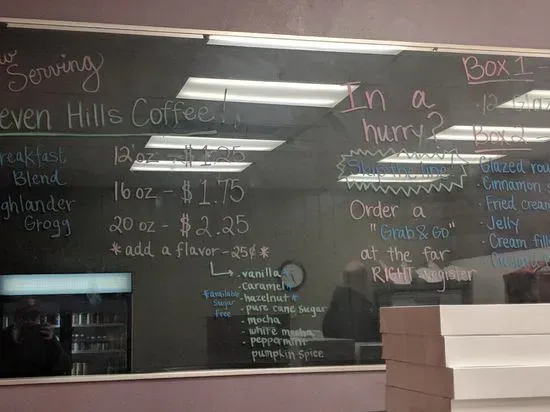 Serving
even Hills Coffee!
reakfast
Blend
ghlander
Grogg
12 oz - $1.25
16 oz - $1.75
20 oz - $2.25
*add a flavor - 25¢*
- vanilla
- caramel
- hazelnut
- pure cane sugar
- mocha
- white mocha
- peppermint
pumpkin spice
*available
sugar
free
In a
hurry?
Skip the line
Order a
"Grab & Go"
at the far
RIGHT register
Box 1 -
Box 2
Glazed rou
Cinnamon
Fried crea
Jelly
Cream fill